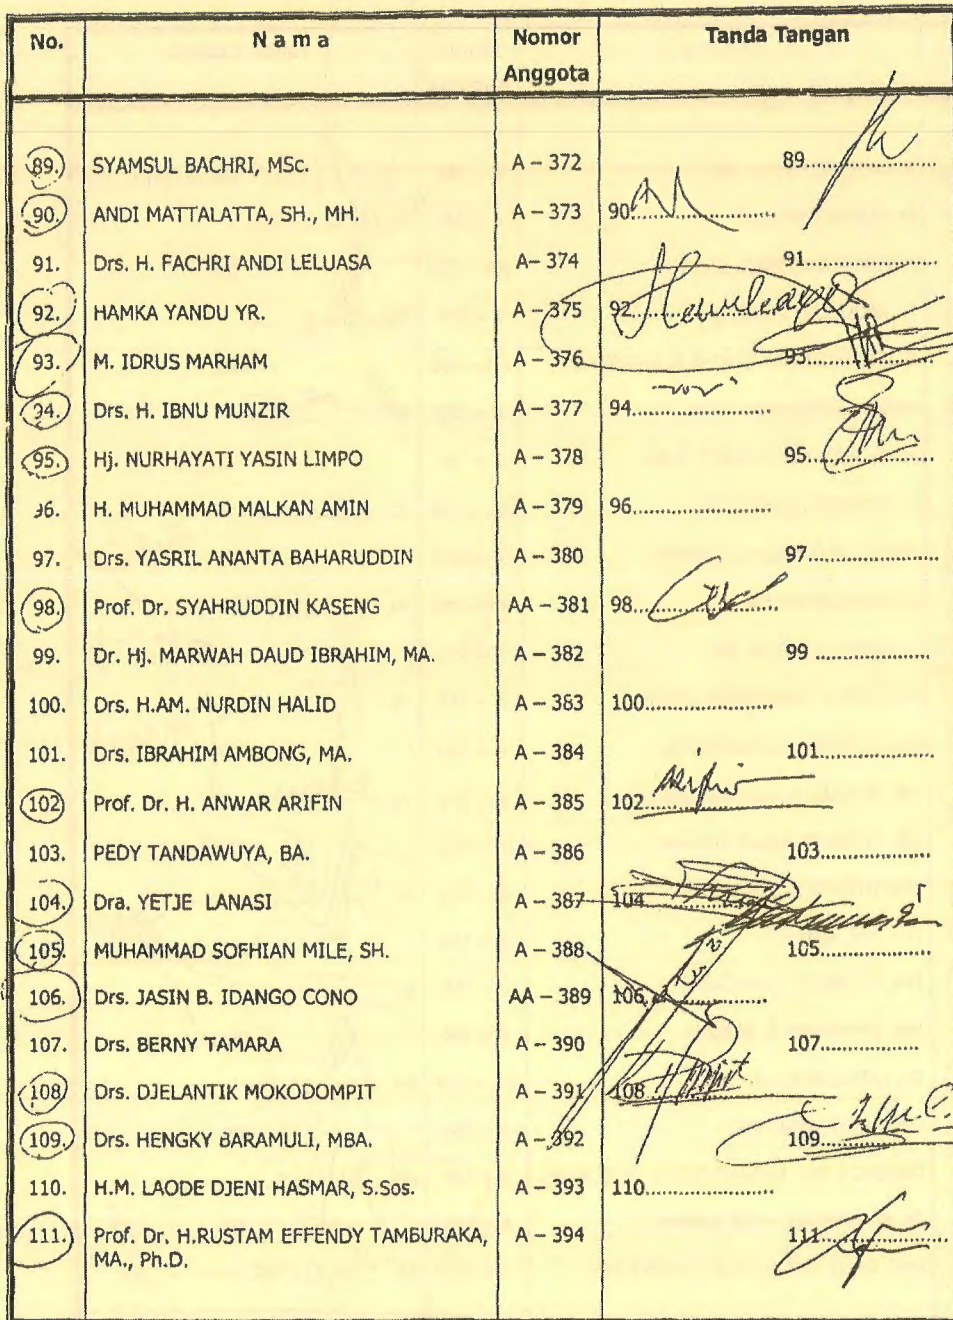 No. N a m a Nomor Anggota Tanda Tangan
89. SYAMSUL BACHRI, MSc. A – 372 89....................
90. ANDI MATTALATTA, SH., MH. A – 373 90....................
91. Drs. H. FACHRI ANDI LELUASA A– 374 91....................
92. HAMKA YANDU YR. A – 375 92....................
93. M. IDRUS MARHAM A – 376 93....................
94. Drs. H. IBNU MUNZIR A – 377 94....................
95. Hj. NURHAYATI YASIN LIMPO A – 378 95....................
96. H. MUHAMMAD MALKAN AMIN A – 379 96....................
97. Drs. YASRIL ANANTA BAHARUDDIN A – 380 97....................
98. Prof. Dr. SYAHRUDDIN KASENG AA – 381 98....................
99. Dr. Hj. MARWAH DAUD IBRAHIM, MA. A – 382 99 ....................
100. Drs. H.AM. NURDIN HALID A – 383 100....................
101. Drs. IBRAHIM AMBONG, MA. A – 384 101....................
102 Prof. Dr. H. ANWAR ARIFIN A – 385 102....................
103. PEDY TANDAWUYA, BA. A – 386 103....................
104. Dra. YETJE LANASI A – 387 104....................
105. MUHAMMAD SOFHIAN MILE, SH. A – 388 105....................
106. Drs. JASIN B. IDANGO CONO AA – 389 106....................
107. Drs. BERNY TAMARA A – 390 107....................
108 Drs. DJELANTIK MOKODOMPIT A – 391 108....................
109. Drs. HENGKY BARAMULI, MBA. A – 392 109....................
110. H.M. LAODE DJENI HASMAR, S.Sos. A – 393 110....................
111. Prof. Dr. H.RUSTAM EFFENDY TAMBURAKA, A – 394 111....................
MA., Ph.D.